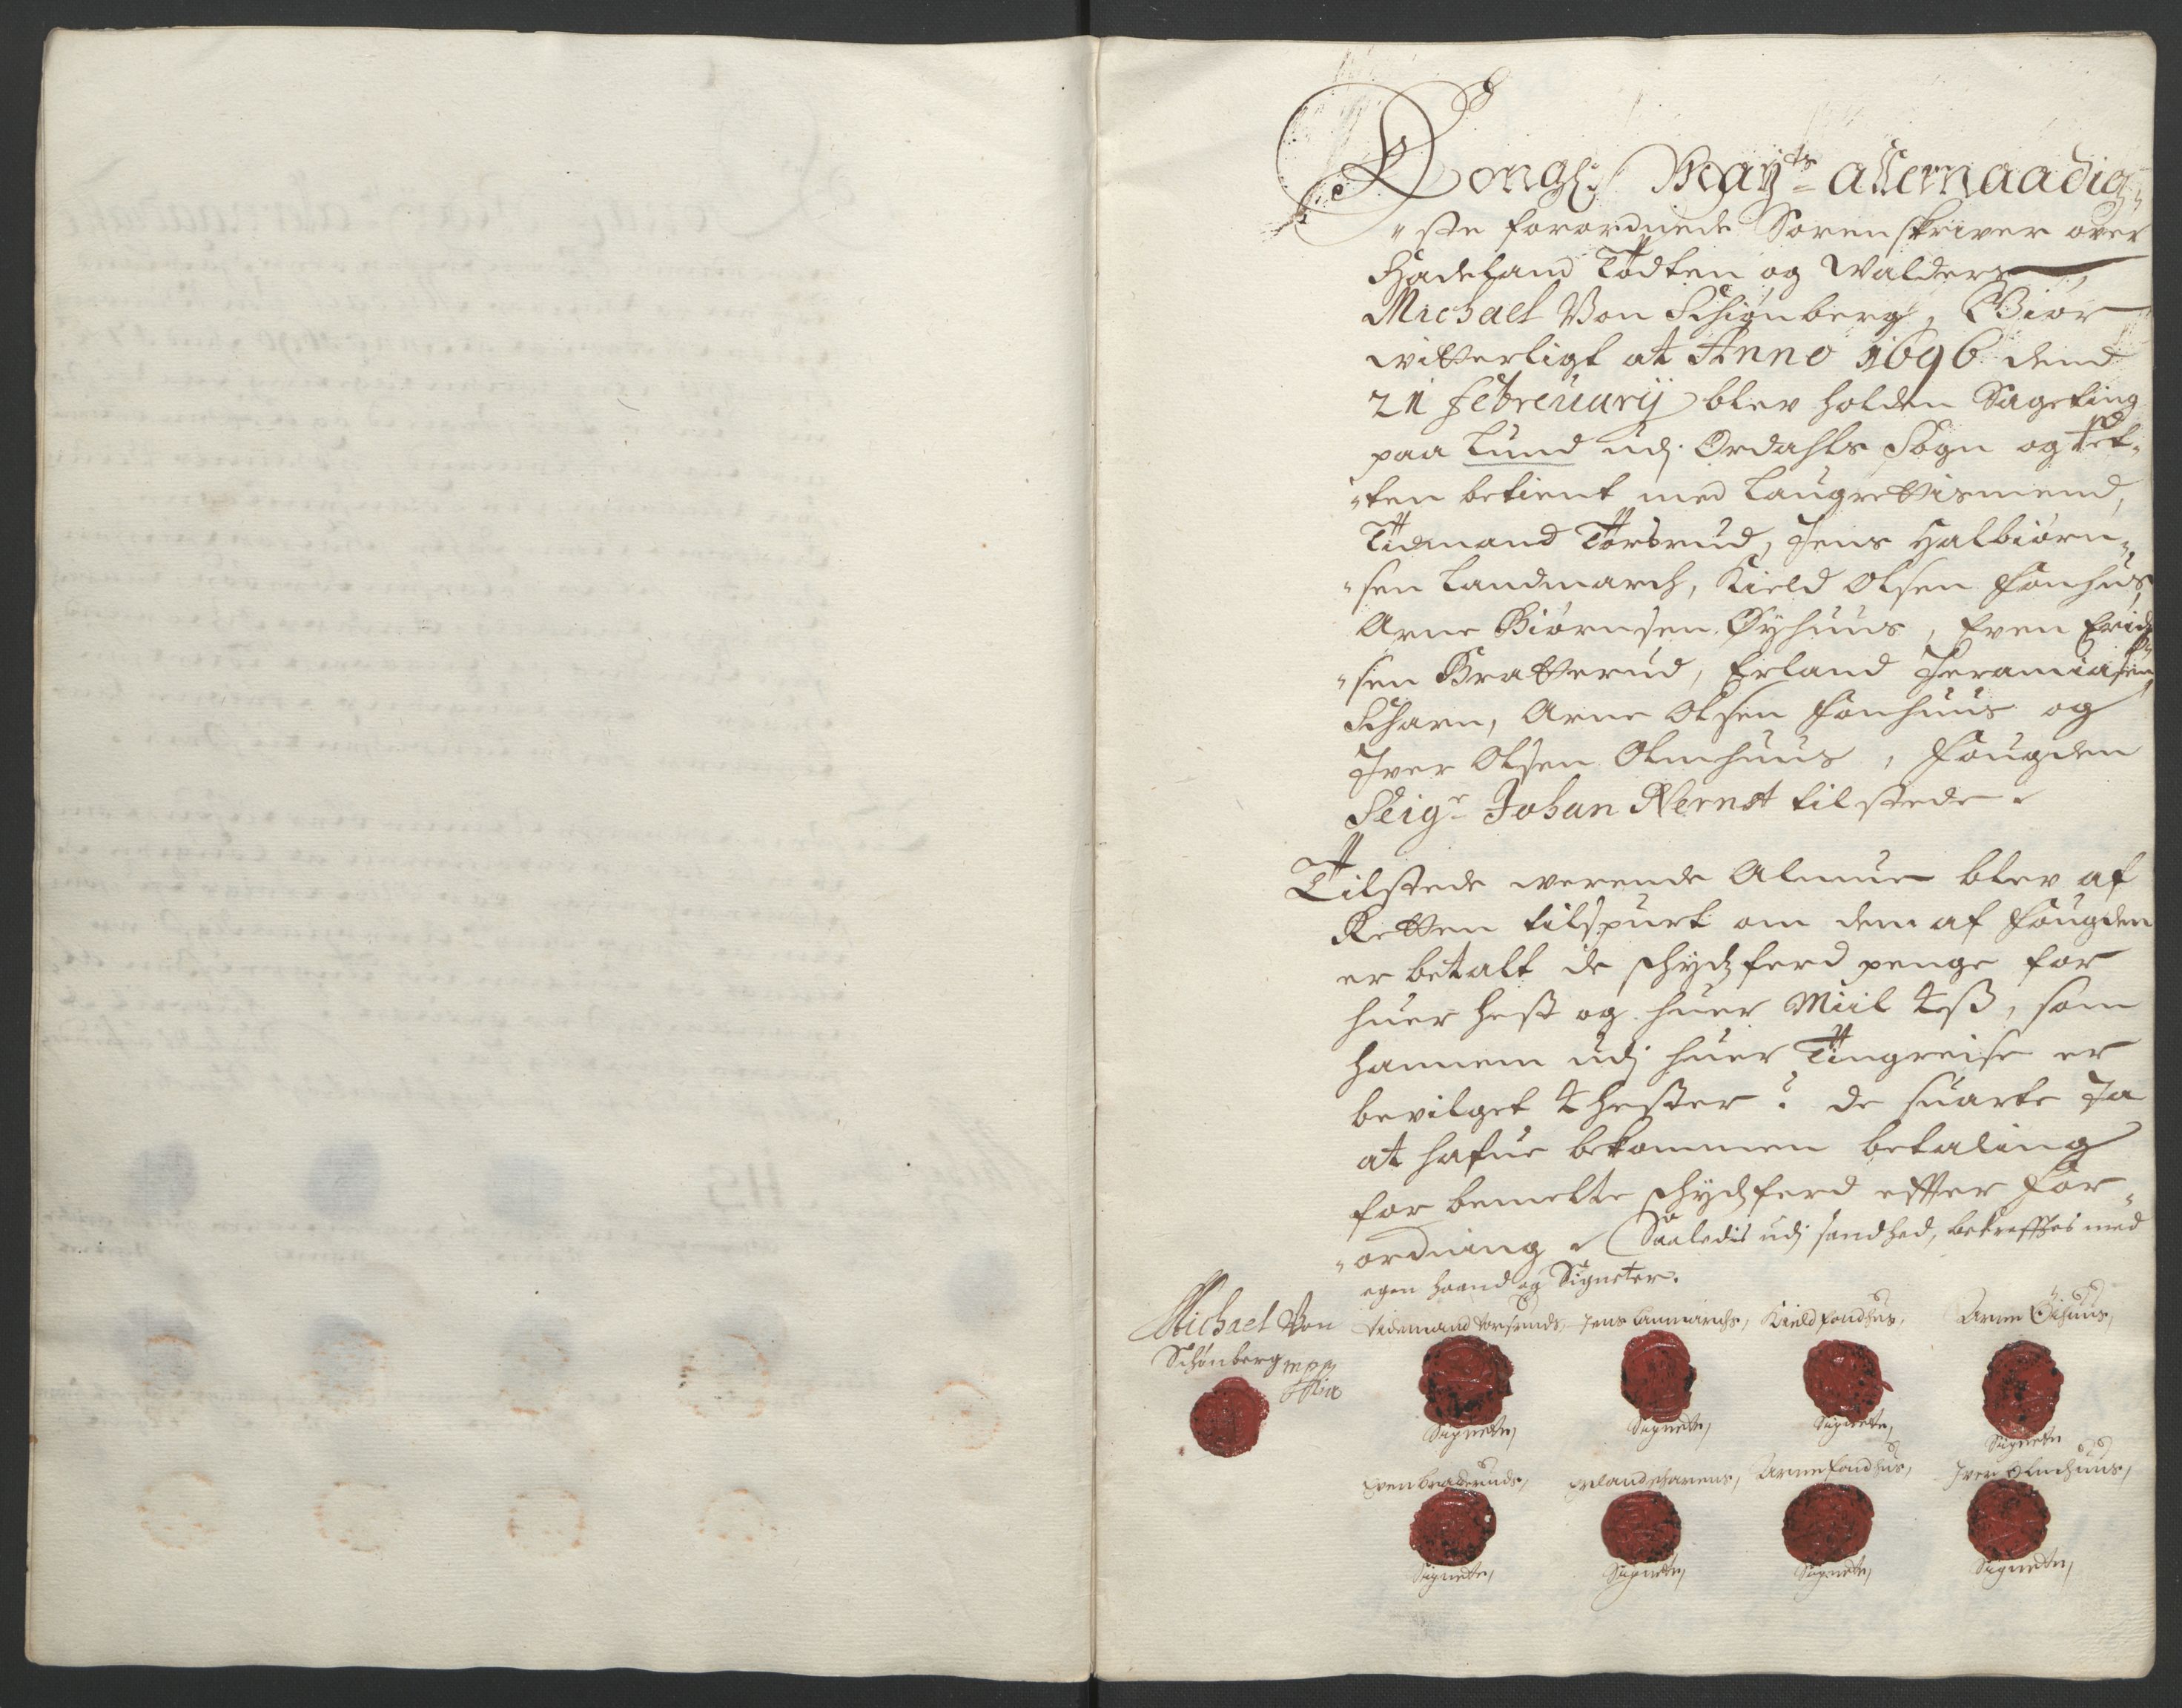 Kongl: May:ts allernaadig„
„ste forordnede Sorenskriver over
Hadeland Todten og Walders,
Michael Von Schiønberg, Giør
witterligt at Anno 1696 dend
21 februarij blev holden Sageting
paa Lund udj Ordahls Sogn og Ret„
„ten betient med Laugrettismend,
Tidemand Torsrud, Jens Halbiørn„
„sen Landmarch, Kield Olsen Fonhus,
Arne Biørnsen Øyhuus, Even Erich„
„sen Bratterud, Erland Jeramiasen
Scharn, Arne Olsen Fonhuus og
Iver Olsen Olmhuus, Fougden
Seigr Johan Rernst tilstede.
Tilstede werende Almue blev af
Retten tilspurt om dem af Fougden
er betalt de schydzferd penge for
huer hest og huer Miil 4 ß, som
hannem udj huer Tingreise er
bevilget 4 hester? de suarte Ja
at hafue bekommen betaling
for bemelte schydzferd effter For„
„ordning. Saaledis udj sandhed, bekreffter med
egen haand og Signeter.
Michael Von
Schønberg mpp
Tidemand Torsruds, Jens Lanmarchs, Kield Fondhus, Arne Øihuus,
Signete, Signete, Signete, Signete
Even Bratteruds, Erland Scharens, Arne Fondhus, Iver Olmhuus,
Signete, Signete, Signete, Signete,